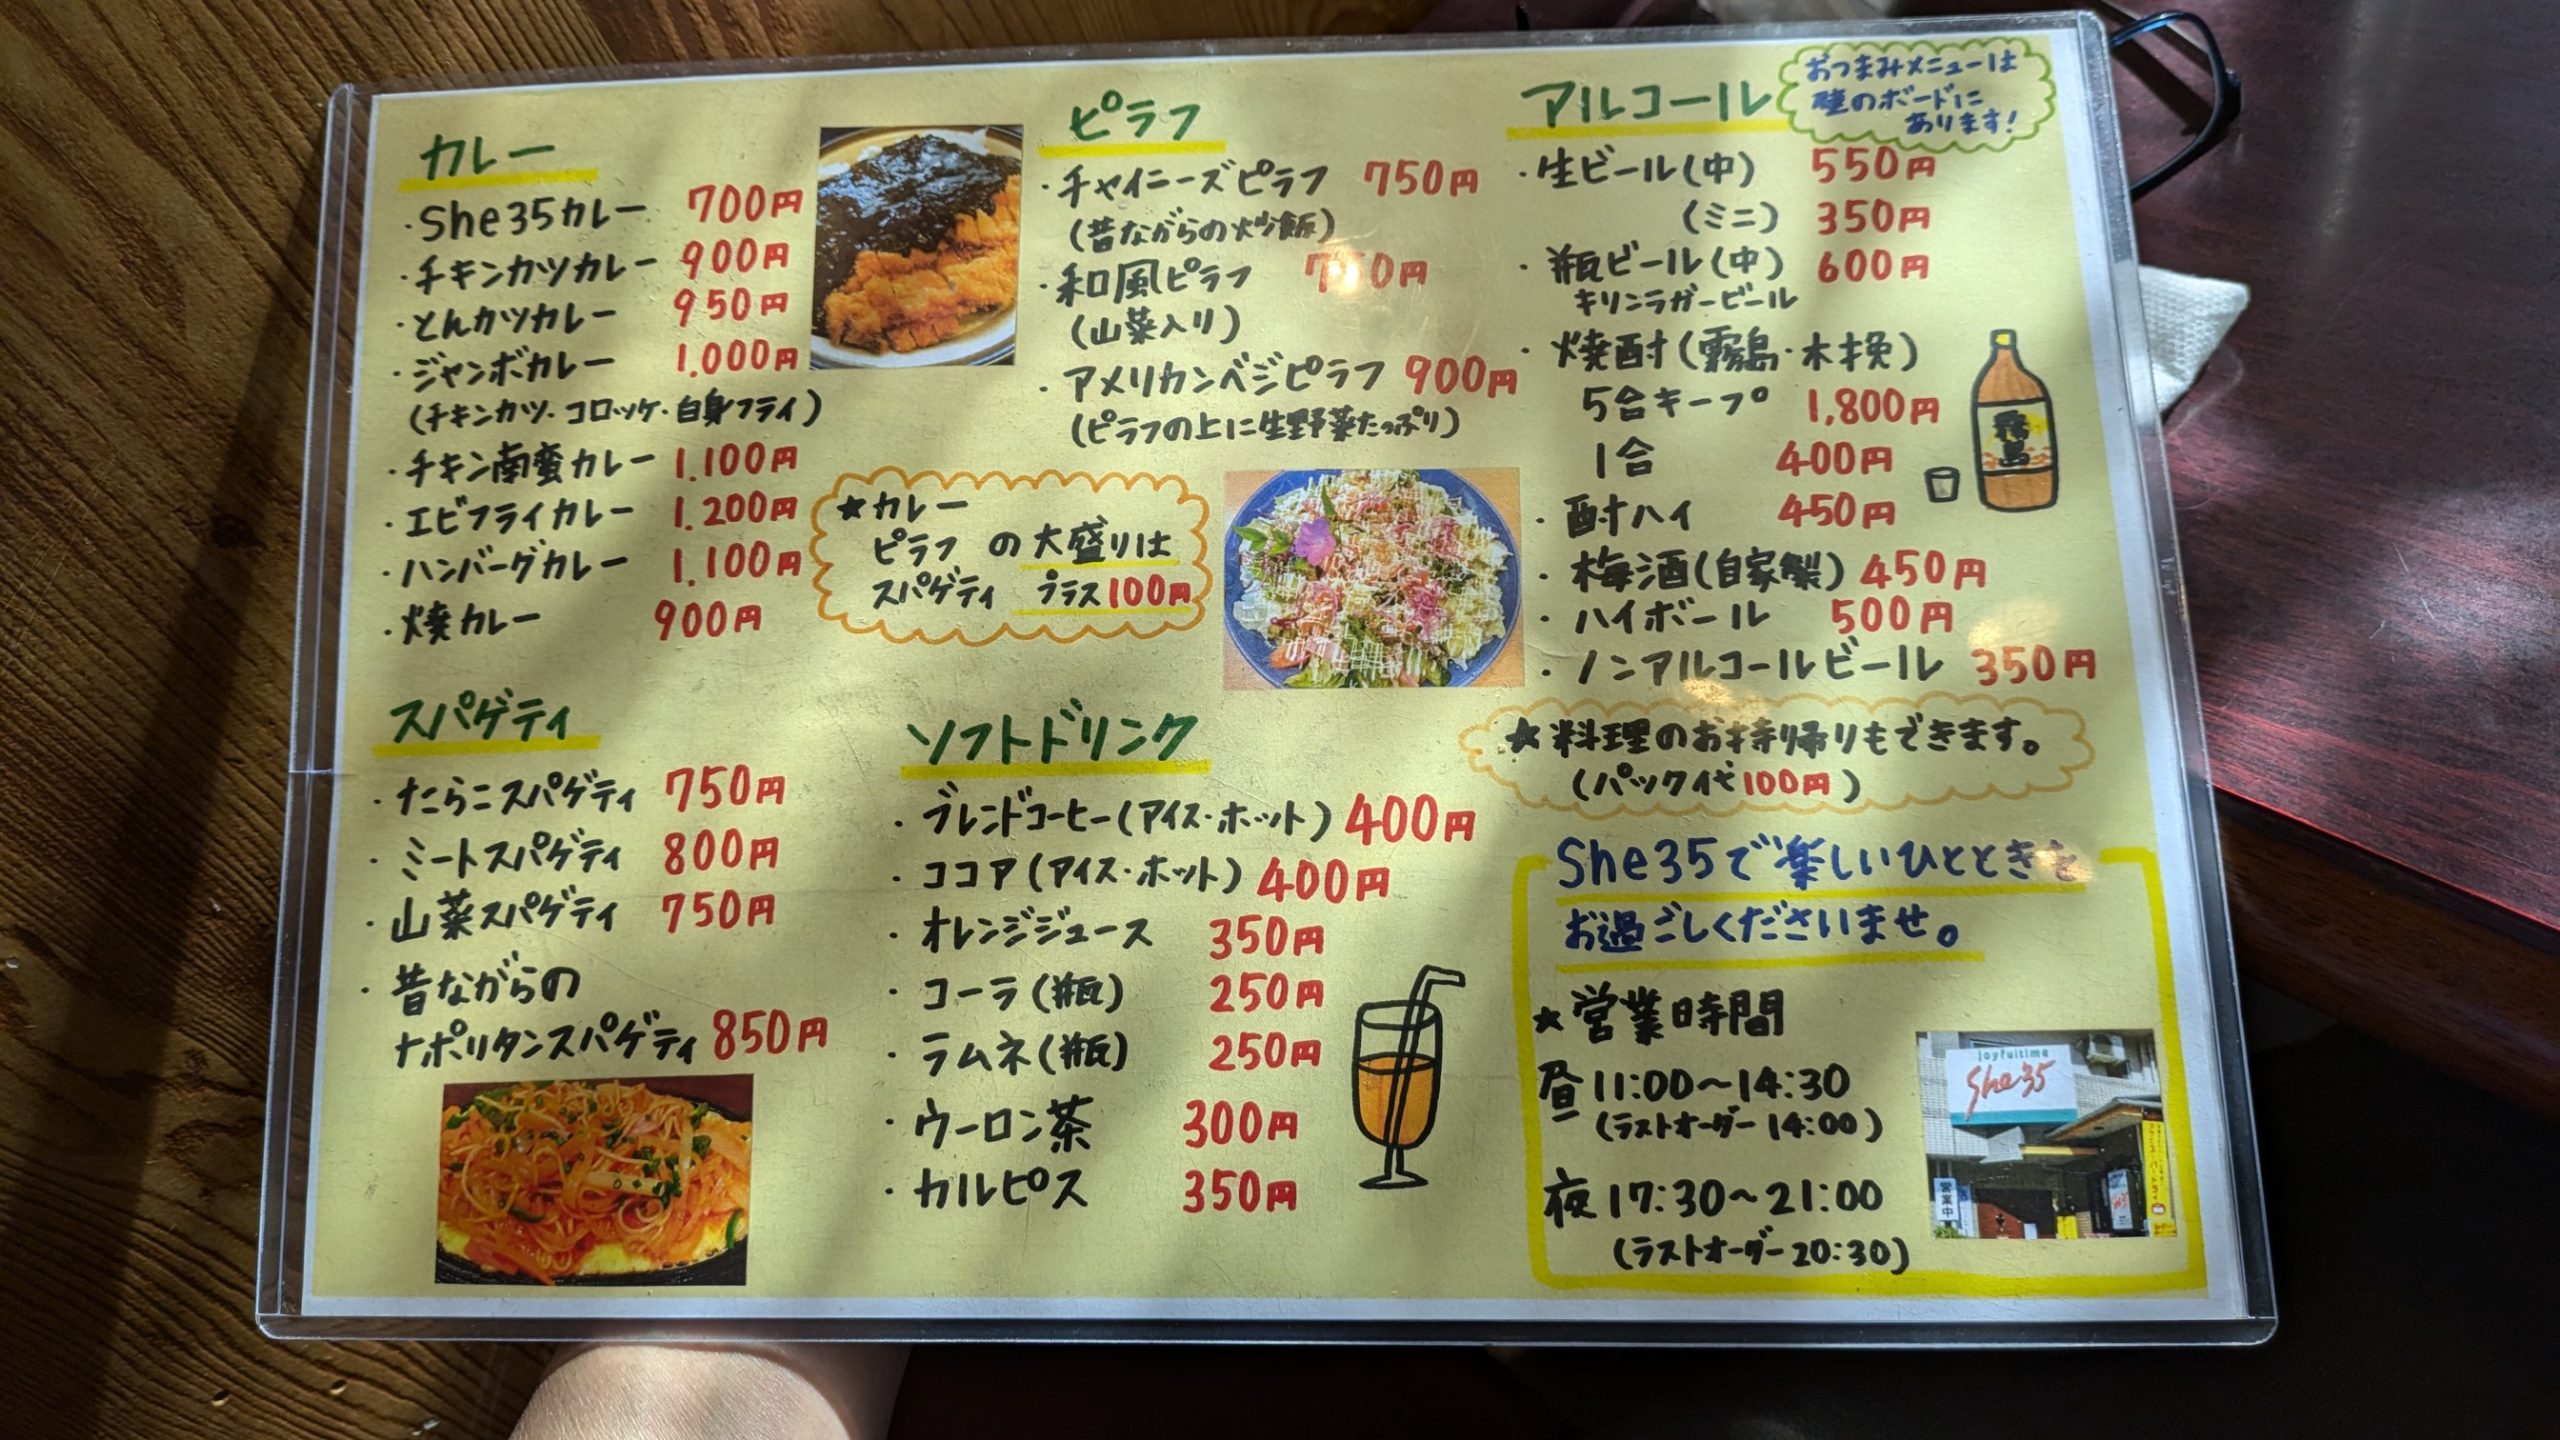 カレー
・She35カレー 700円
・チキンカツカレー 900円
・とんカツカレー 950円
・ジャンボカレー 1.000円
(チキンカツ・コロッケ・白身フライ)
・チキン南蛮カレー 1.100円
・エビフライカレー 1.200円
・ハンバーグカレー 1.100円
・焼カレー 900円
スパゲティ
・たらこスパゲティ 750円
・ミートスパゲティ 800円
・山菜スパゲティ 750円
・昔ながらの
ナポリタンスパゲティ 850円
ピラフ
・チャイニーズピラフ 750円
(昔ながらの炒飯)
・和風ピラフ 円
(山菜入り)
・アメリカンベジピラフ 900円
(ピラフの上に生野菜たっぷり)
★カレー
ピラフ の大盛りは
スパゲティ プラス100円
ソフトドリンク
・ブレンドコーヒー(アイス・ホット) 400円
・ココア(アイス・ホット) 400円
・オレンジジュース 350円
・コーラ(瓶) 250円
・ラムネ(瓶) 250円
・ウーロン茶 300円
・カルピス 350円
アルコール
おつまみメニューは
壁のボードに
あります!
・生ビール(中) 550円
(ミニ) 350円
・瓶ビール(中) 600円
キリンラガービール
・焼酎(霧島・木挽)
5合キープ 1,800円
1合 400円
・酎ハイ 450円
・梅酒(自家製) 450円
・ハイボール 500円
・ノンアルコールビール 350円
霧島
★料理のお持ち帰りもできます。
(パック代100円)
She35で楽しいひとときを
お過ごしくださいませ。
★営業時間
昼 11:00〜14:30
(ラストオーダー 14:00)
夜 17:30〜21:00
(ラストオーダー 20:30)
joyfultime
She35
営業中